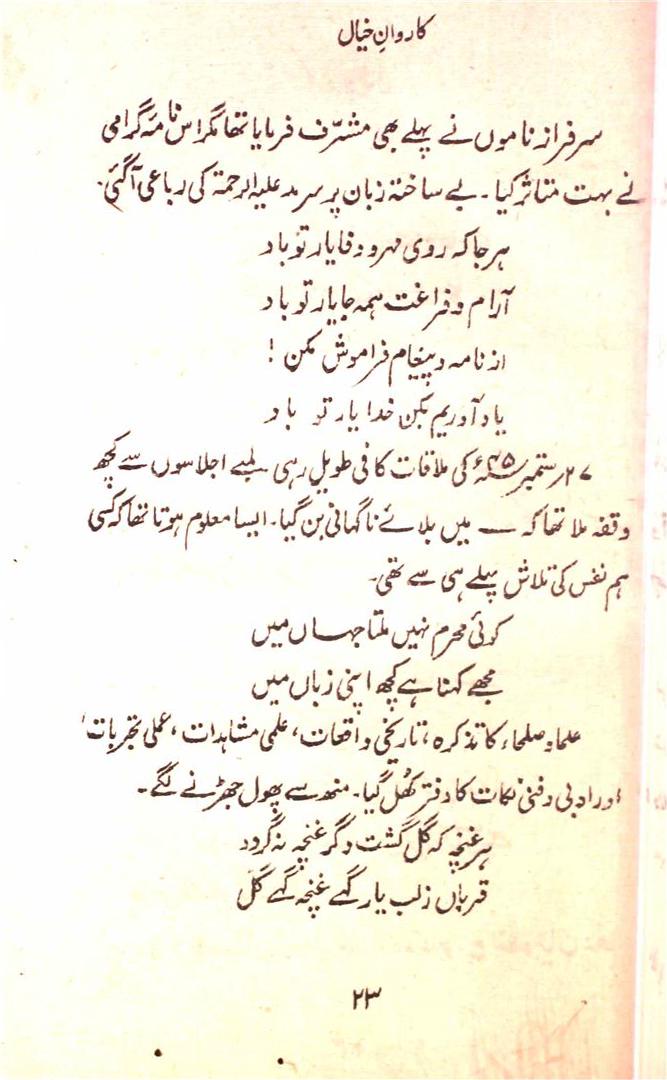 کاروانِ خیال
سرفراز ناموں نے پہلے بھی مشرّف فرمایا تھا مگر اس نامۂ گرامی
نے بہت متاثر کیا۔ بے ساختہ زبان پر سرمد علیہ الرحمۃ کی رباعی آ گئی۔
ہر جا کہ روی مہر و وفا یار تو باد
آرام و فراغت ہمہ جا یار تو باد
از نامہ و پیغام فراموش مکن !
یاد آوریم بکن خدا یار تو باد
۲۷ ستمبر ۴۵ء کی ملاقات کافی طویل رہی۔ لمبے اجلاسوں سے کچھ
وقفہ ملا تھا کہ — میں بلائے ناگہانی بن گیا۔ ایسا معلوم ہوتا تھا کہ کسی
ہم نفس کی تلاش پہلے ہی سے تھی۔
کوئی محرم نہیں ملتا جہاں میں
مجھے کہنا ہے کچھ اپنی زباں میں
علماء و صلحاء کا تذکرہ، تاریخی واقعات، علمی مشاہدات، عملی تجربات،
اور ادبی و فنی نکات کا دفتر کھُل گیا۔ منھ سے پھول جھڑنے لگے۔
ہر غنچہ کہ گل گشت دگر غنچہ نہ گردد
قرباں ز لب یار گہے غنچہ گہے گل
۲۳